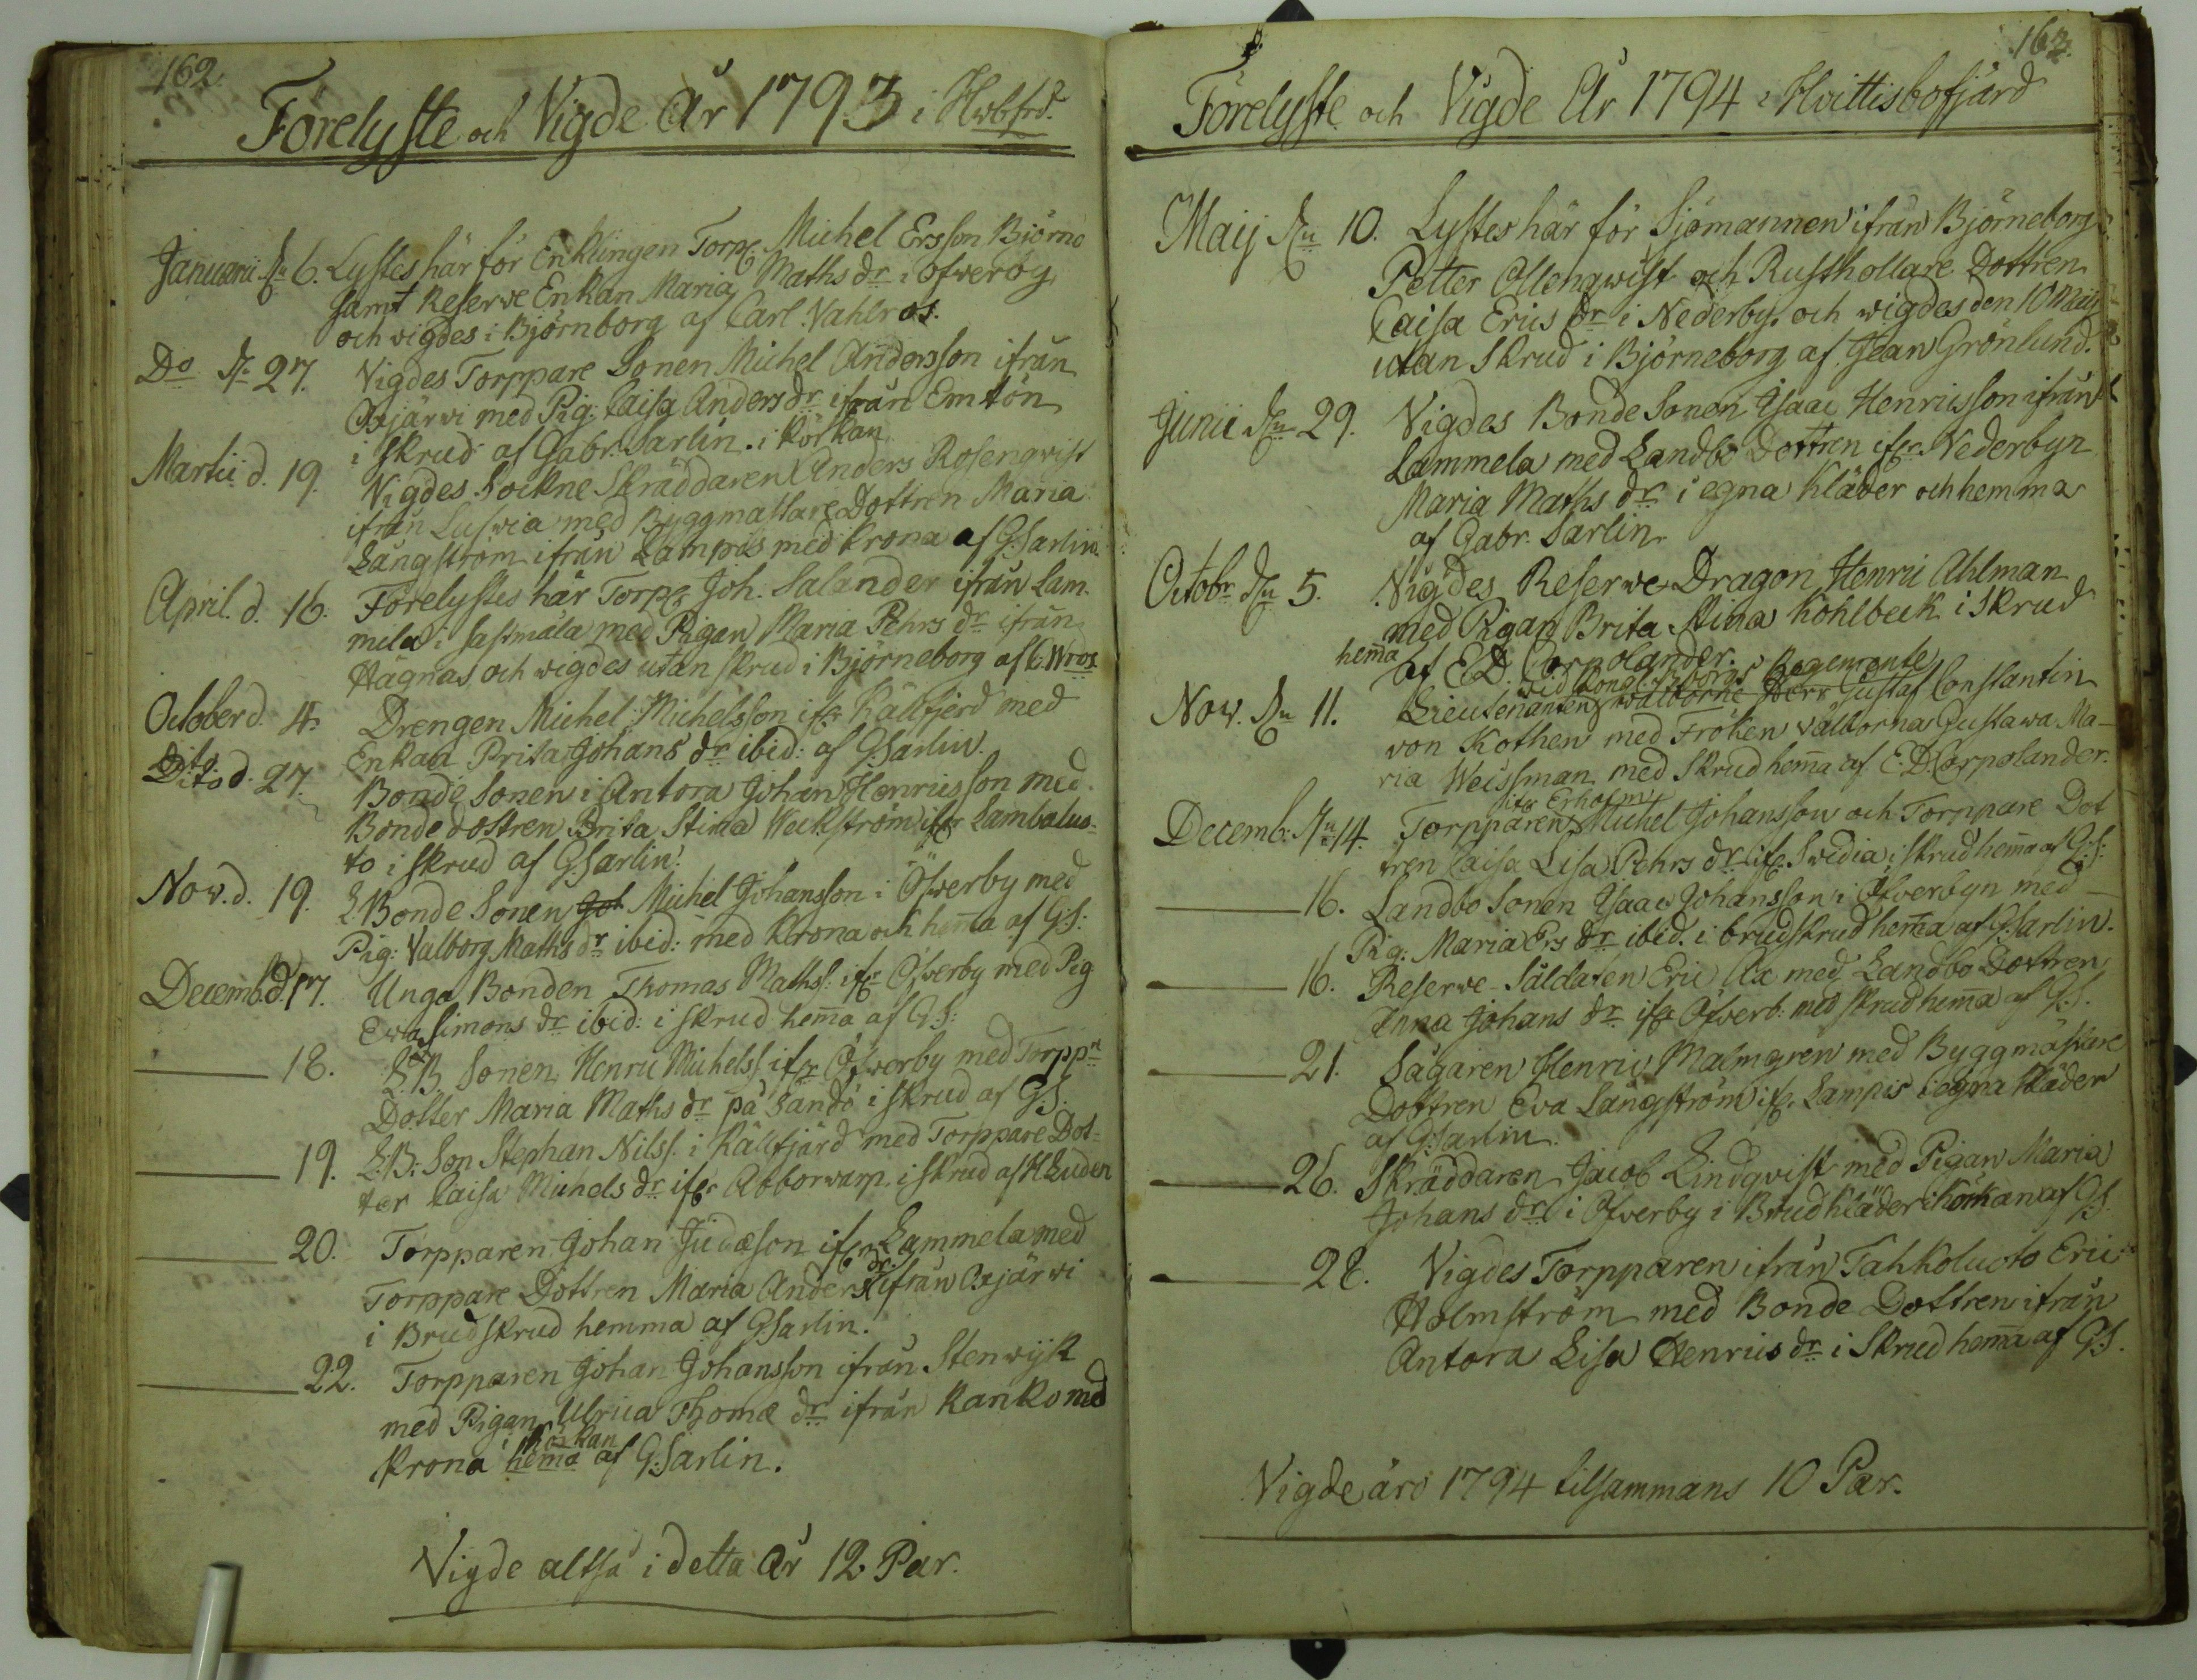 162.
Förelyste och Vigde År 1793 i Hwbfrd.
Januarii dn 6. Lystes här för Enklingen Torp. Michel Ersson Björno
samt Reserve Enkan Maria Maths dr i Ofwerby
och wigdes i Björnborg af Carl Vahlros.
Do d. 27. Vigdes Torppare Sonen Michel Andersson ifrån
Oxjärwi med Pig. Caisa Anders dr ifrån Emtön
i skrud af Gabr. Sarlin i Körkan
Martii d. 19. Vigdes Sockne Skräddaren Anders Rosenqwist
ifrån Luswia med Byggmästare Dottren Maria
Långström ifrån Lampis med krona af G.Sarlin.
April. d. 16. Förelystes här Torp. Joh. Salander ifrån Lam-
mela i Sastmåla med Pigan Maria Pehrs dr ifrån
Hägnäs och wigdes utan skrud i Björneborg af C. Wros
October d. 4. Drengen Michel Michelsson ifr Källfjerd med
Enkan Brita Johans dr ibid: af G.Sarlin.
Dito d. 27. Bonde Sonen i Antora Johan Henricsson med
Bonde dottren Brita Stina Weckström ifr Lambaluo-
to i skrud af G.Sarlin.
Nov. d. 19. L Bonde Sonen Joh Michel Johansson i Öfwerby med
Pig: Valborg Maths dr ibid: med Krona och hema af G:S:
Decemb. d. 17. Unga Bonden Thomas Maths: ifr Öfwerby med Pig
Ewa Simons dr ibid: i skrud hema af G.S:
18. L.B. Sonen Henric Michelss. ifr Öfwerby med Torppn
Dotter Maria Maths dr på Sandö i skrud af G.S.
19. L:B: Son Stephan Nilss. i Källfjärd med Torppare Dot-
ter Caisa Michels dr ifr Abborwarp. i skrud af H Luden
20. Torpparen Johan Judæson ifr Lammela med
Torppare Dottren Maria Anders dr ifrån Oxjärwi
i Brudskrud hemma af G.Sarlin.
22. Torpparen Johan Johansson ifrån Stenwijk
med Pigan Ulrica Thomæ dr ifrån Kanko med
i Körkan
Krona hema af G:Sarlin.
Vigde altså i detta År 12 Par.
163.
Förelyste och Vigde År 1794 i Hvittisbofjärd
Maij dn 10. Lystes här för Sjömannen ifrån Björneborg
Petter Ollenqwist och Rusthollare Dottren
Caisa Erics dr i Nederby. och wigdes den 10 Maij
utan Skrud i Björneborg af Jean Grönlund.
Junii dn 29. Vigdes Bonde Sonen Isaac Henricsson ifrån
Lammela med Landbo Dottren ifr. Nederbyn
Maria Maths dr i egna Kläder och hemma
af Gabr. Sarlin
Octobr dn 5. Vigdes Reserwe Dragon Henric Ahlman
med Pigan Brita Stina Kohlbeck i skrud
hema af E.D. Corpolander.
wid Kongl. Regemente
Nov. dn 11. Lieutenanten wälborne Herr Gustaf Constantin
von Kothen med Fröken wälborna Gustawa Ma-
ria Weissman med Skrud hema af E.D.Corpolander.
Decemb. dn 14. Torpparen Michel Johansson och Torppare Dot
tren Caisa Lisa Pehrs dr ifr. Swidia i skrud hema af G.S:
16. Landbo Sonen Isaac Johansson i Öfwerbyn med
Pig. Maria Ers dr ibid. i brudskrud hema af G.Sarlin.
16. Reserve Såldaten Eric Ax med Landbo Dottren
Anna Johans dr ifr Öfwerb: med skrud hema af G.S.
21. Sågaren Henric Malmgren med Byggmästare
Dottren Eva Långström ifr. Lampis i egna Kläder
af G:Sarlin.
26. Skräddaren Jacob Lindqwist med Pigan Maria
Johans dr i Öfwerby i Brudkläder i Körkan af G.S.
28. Vigdes Torpparen ifrån Tahkoluoto Eric
Holmström med Bonde Dottren ifrån
Antora Lisa Henrics dr i Skrud hema af G.S.
Vigde äro 1794 tilsammans 10 Par.